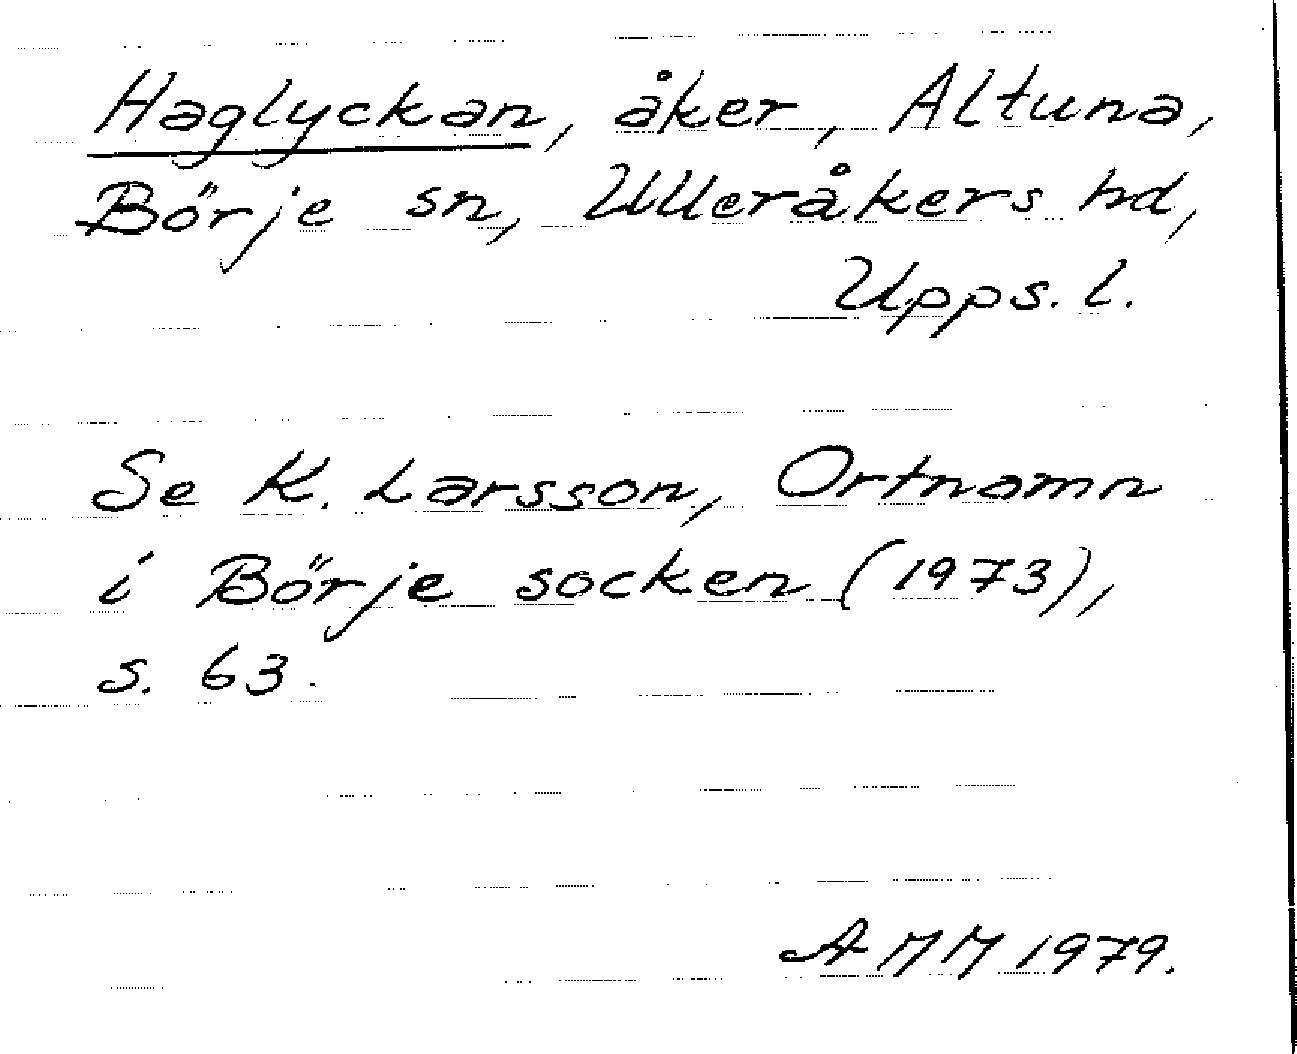 Haglyckan, åker, Altuna,
Börje sn, Ulleråkers hd,
Upps. l.
Se K. Larsson, Ortnamn
i Börje socken (1973),
s. 63.
AMM 1979.